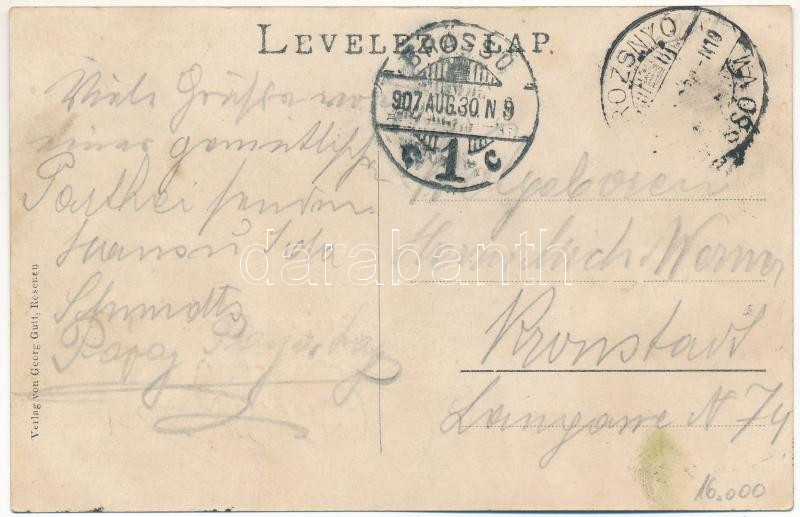 LEVELEZŐ-LAP.
BRASSÓ
907 AUG. 30. N 9
1 C
ROZSNYÓ
Viele Grüsse von
einer gemütlichen
Parthei senden
Hans u Ida
Schmidts
Wolgeboren
Heinrich Werner
Kronstadt
Langgasse N 74
Verlag von Georg Gutt, Rosenau
darabanth
16.000